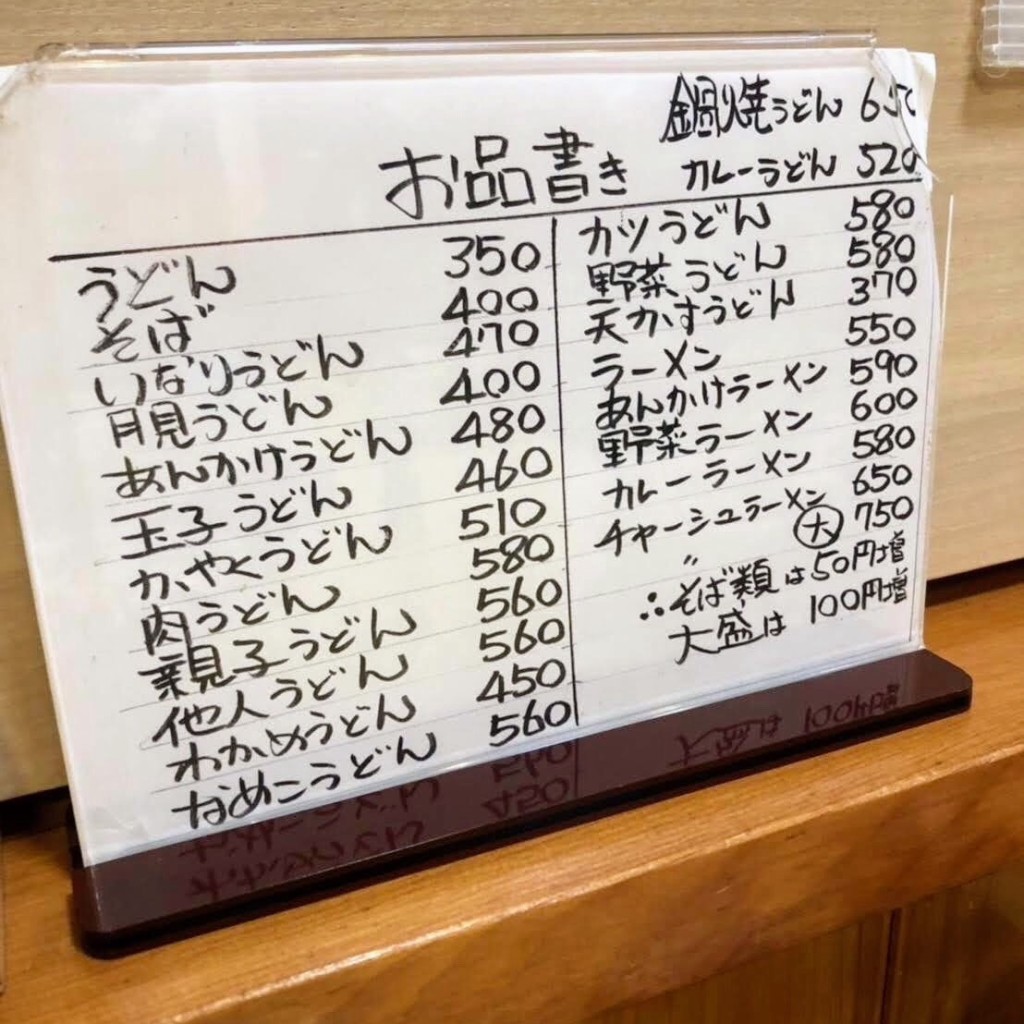 鍋焼うどん 650
お品書き
カレーうどん 520
うどん 350
そば 400
いなりうどん 470
月見うどん 400
あんかけうどん 480
玉子うどん 460
かやくうどん 510
肉うどん 580
親子うどん 560
他人うどん 560
わかめうどん 450
なめこうどん 560
カツうどん 580
野菜うどん 580
天かすうどん 370
ラーメン 550
あんかけラーメン 590
野菜ラーメン 600
カレーラーメン 580
チャーシュラーメン 650
〃 大 750
∴そば類は50円増
大盛は 100円増